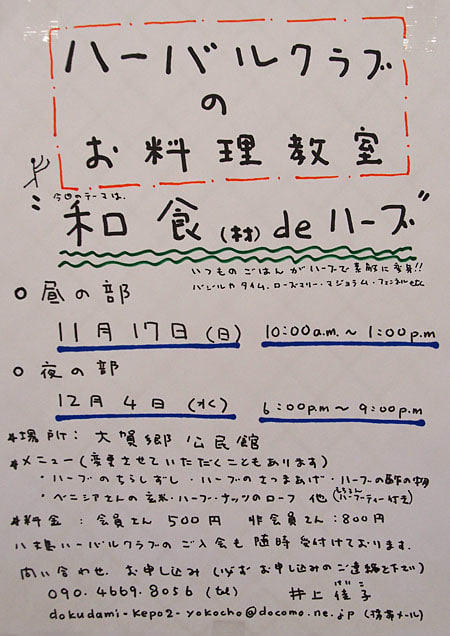 ハーバルクラブ
の
お料理教室
今回のテーマは、
"和食(材) de ハーブ"
いつものごはんがハーブで素敵に変身!!
バジルやタイム、ローズマリー・マジョラム・フェンネルetc
○ 昼の部
11月17日(日) 10:00a.m.~1:00p.m
○ 夜の部
12月4日(水) 6:00p.m~9:00p.m
*場所: 大賀郷公民館
*メニュー(変更させていただくこともあります)
・ハーブのちらしずし・ハーブのさつまあげ・ハーブの酢の物
・ベニシアさんの玄米・ハーブ・ナッツのローフ 他(もちろんハーブティー付き)
*料金: 会員さん 500円 非会員さん:800円
八丈島ハーバルクラブのご入会も随時受付けております.
問い合わせ、お申し込み(必ずお申し込みのご連絡を下さい)
090.4669.8056 (tel) 井上佳子
けいこ
dokudami-kepo2-yokocho@docomo.ne.jp (携帯メール)